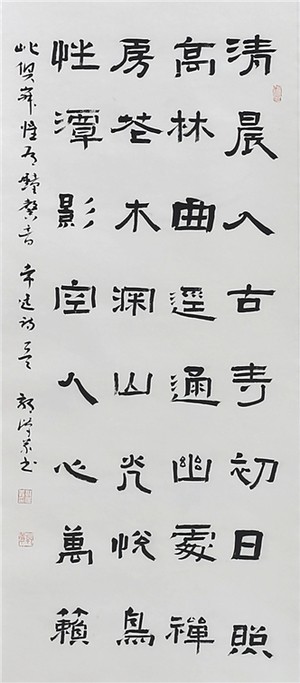 清晨入古寺初日照
髙林曲逕通幽處禪
房花木深山光悅鳥
性潭影空人心萬籟
此俱寂惟鐘磬音 常建詩 書